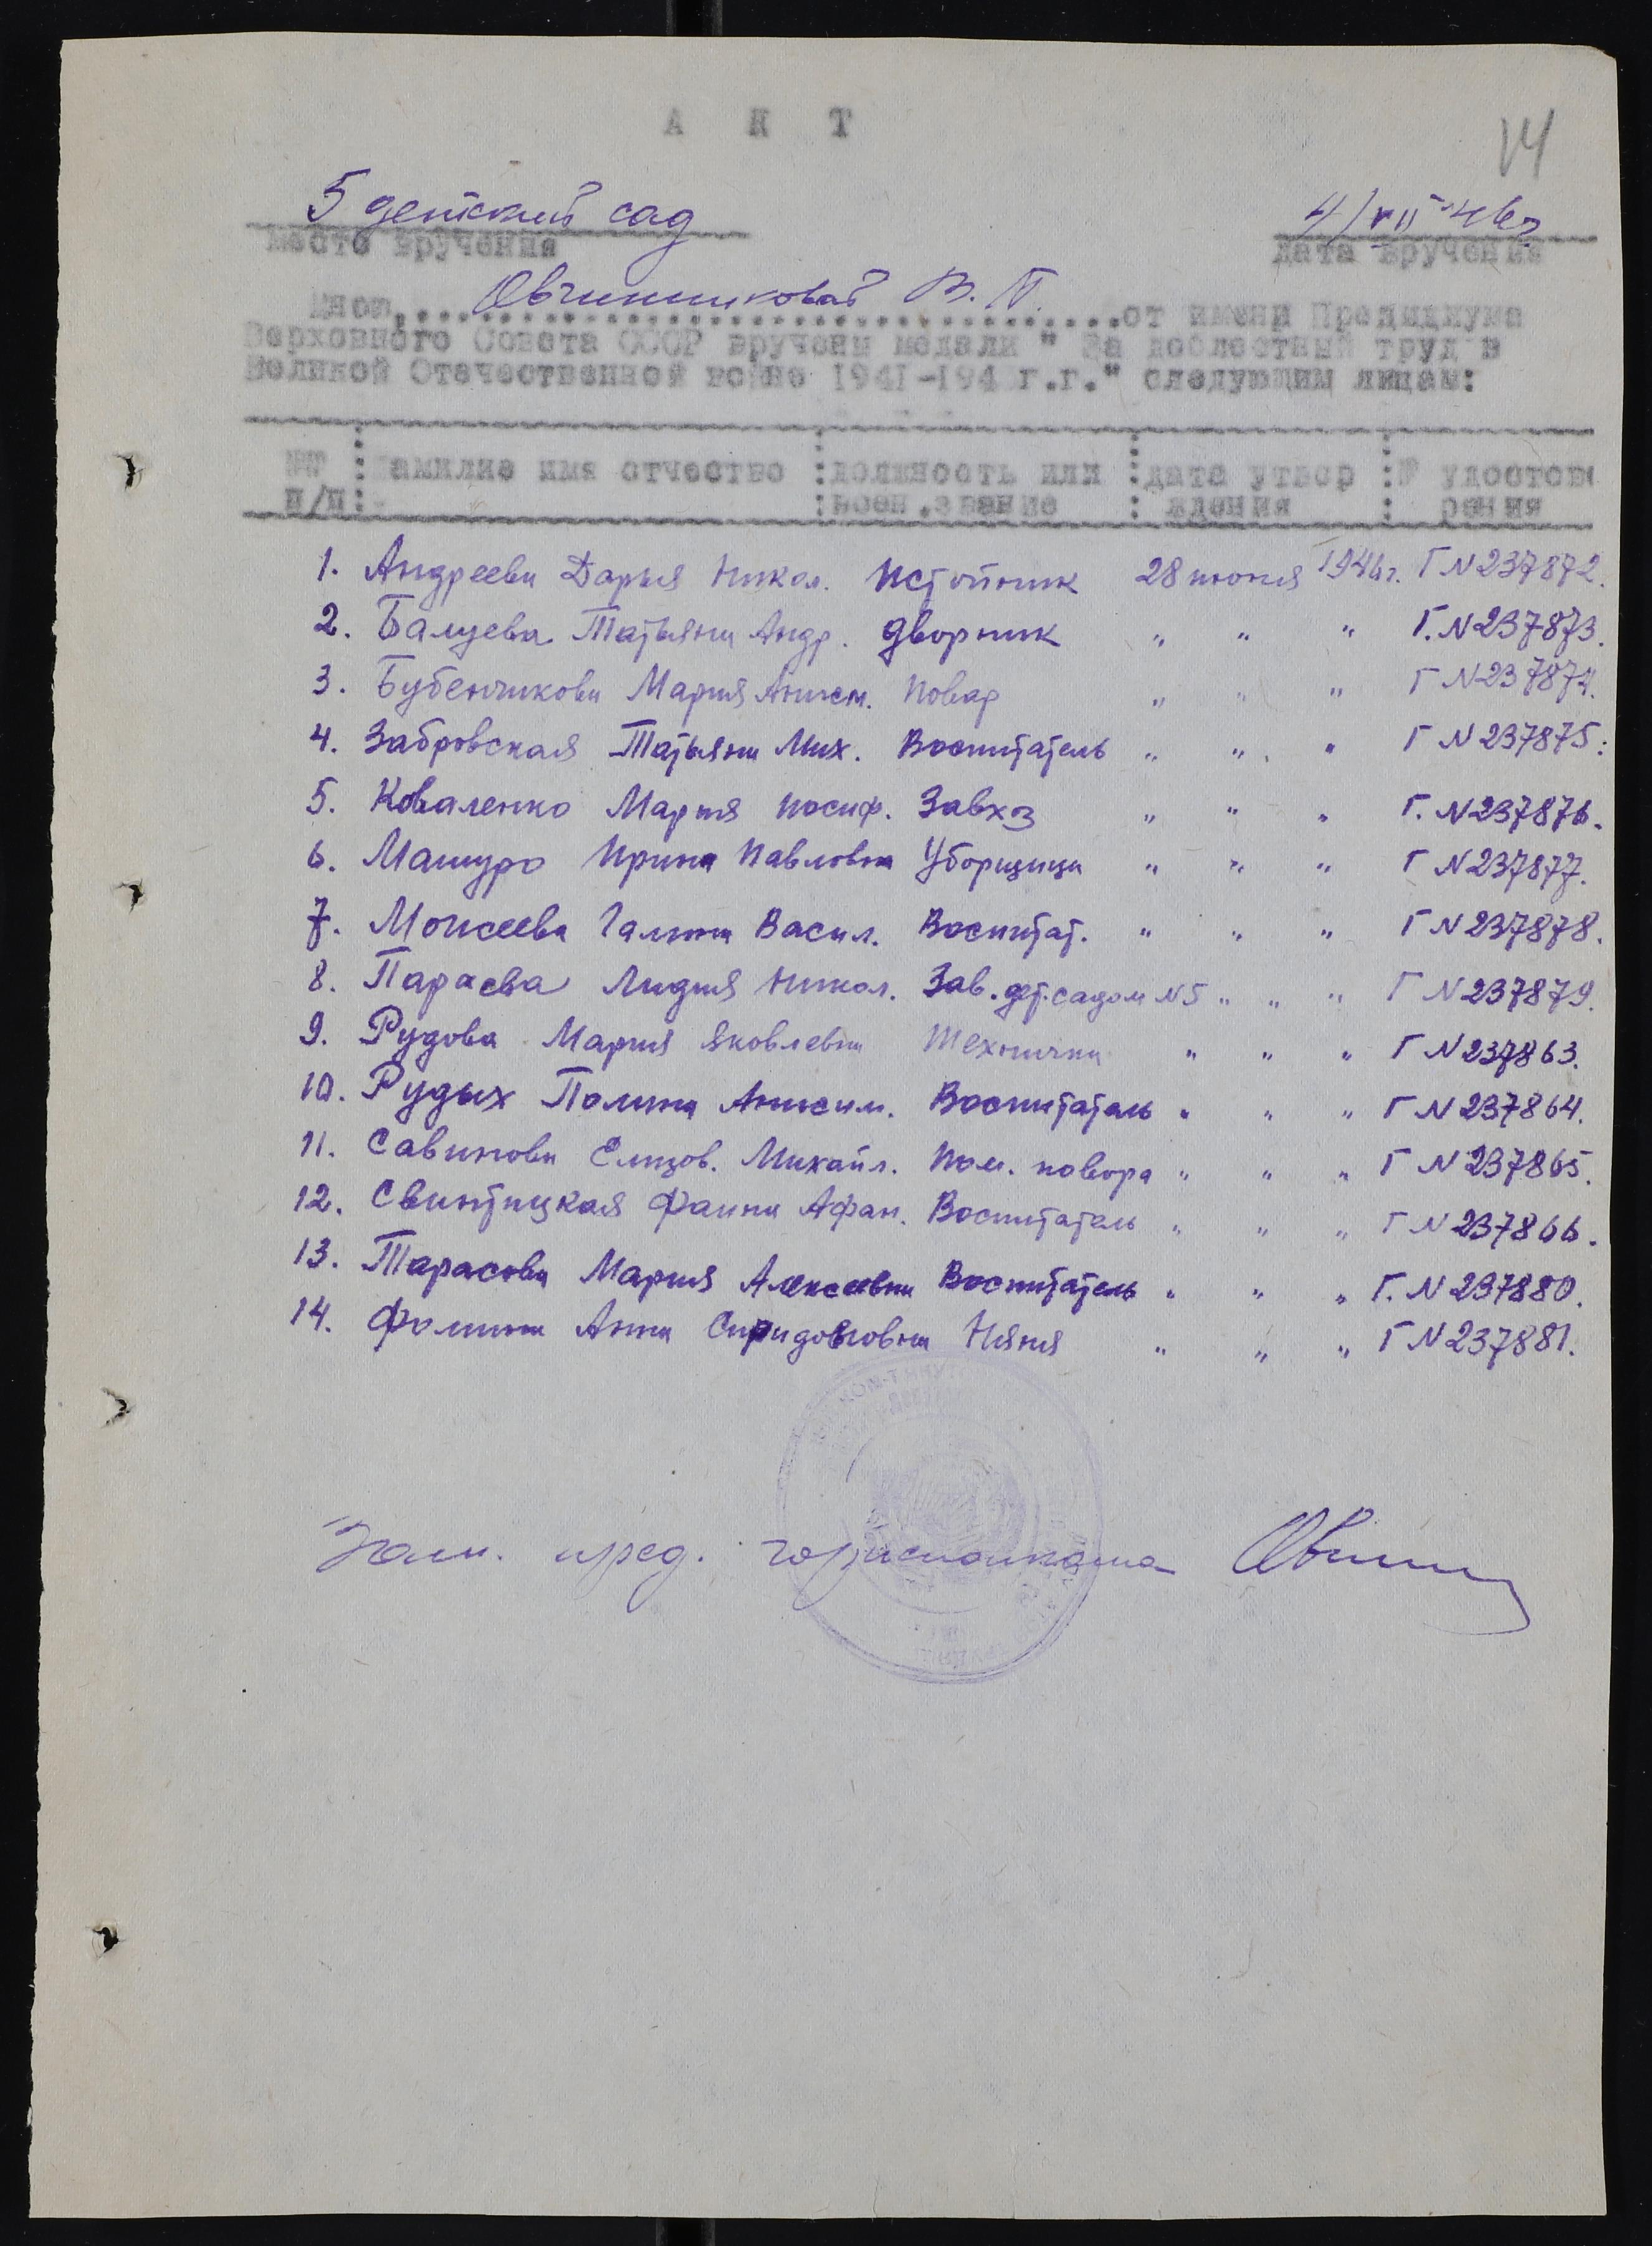 АКТ
14
5 детский сад 4/VII-46г
место вручения дата вручения
Мною, Овчинниковой В. П. от имени Президиума
Верховного Совета СССР вручены медали "За доблестный труд в
Великой Отечественной войне 1941-194 г.г." следующим лицам:
№№ фамилие имя отчество должность или дата утвер № удостове
п/п воен.звание ждения рения
1. Андреева Дарья Никол. Истопник 28 июня 1946г. Г N 237872.
2. Балуева Татьяна Андр. дворник " " " Г. N 237873.
3. Бубенчикова Мария Анисм. Повар " " " Г N 237874.
4. Забровская Татьяна Мих. Воспитатель " " " Г N 237875.
5. Коваленко Мария Иосиф. Завхоз " " " Г. N 237876.
6. Машуро Ирина Павловна Уборщица " " " Г N 237877.
7. Моисеева Галина Васил. Воспитат. " " " Г N 237878.
8. Параева Лидия Никол. Зав. дет. садом N5 " " " Г N 237879.
9. Рудова Мария Яковлевна Техничка " " " Г N 237863.
10. Рудых Полина Анисим. Воспитатель " " " Г N 237864.
11. Савинова Елизов. Михайл. Пом. повора " " " Г N 237865.
12. Свинтицкая Фаина Афан. Воспитатель " " " Г N 237866.
13. Тарасова Мария Алексеевна Воспитатель " " " Г. N 237880.
14. Фомина Анна Спридоновна Няня " " " Г N 237881.
Зам. пред. горисполкома